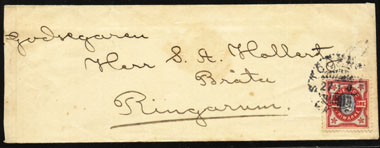 Godsegaren
Herr S. A. Hallert
Bråta
Ringarum.